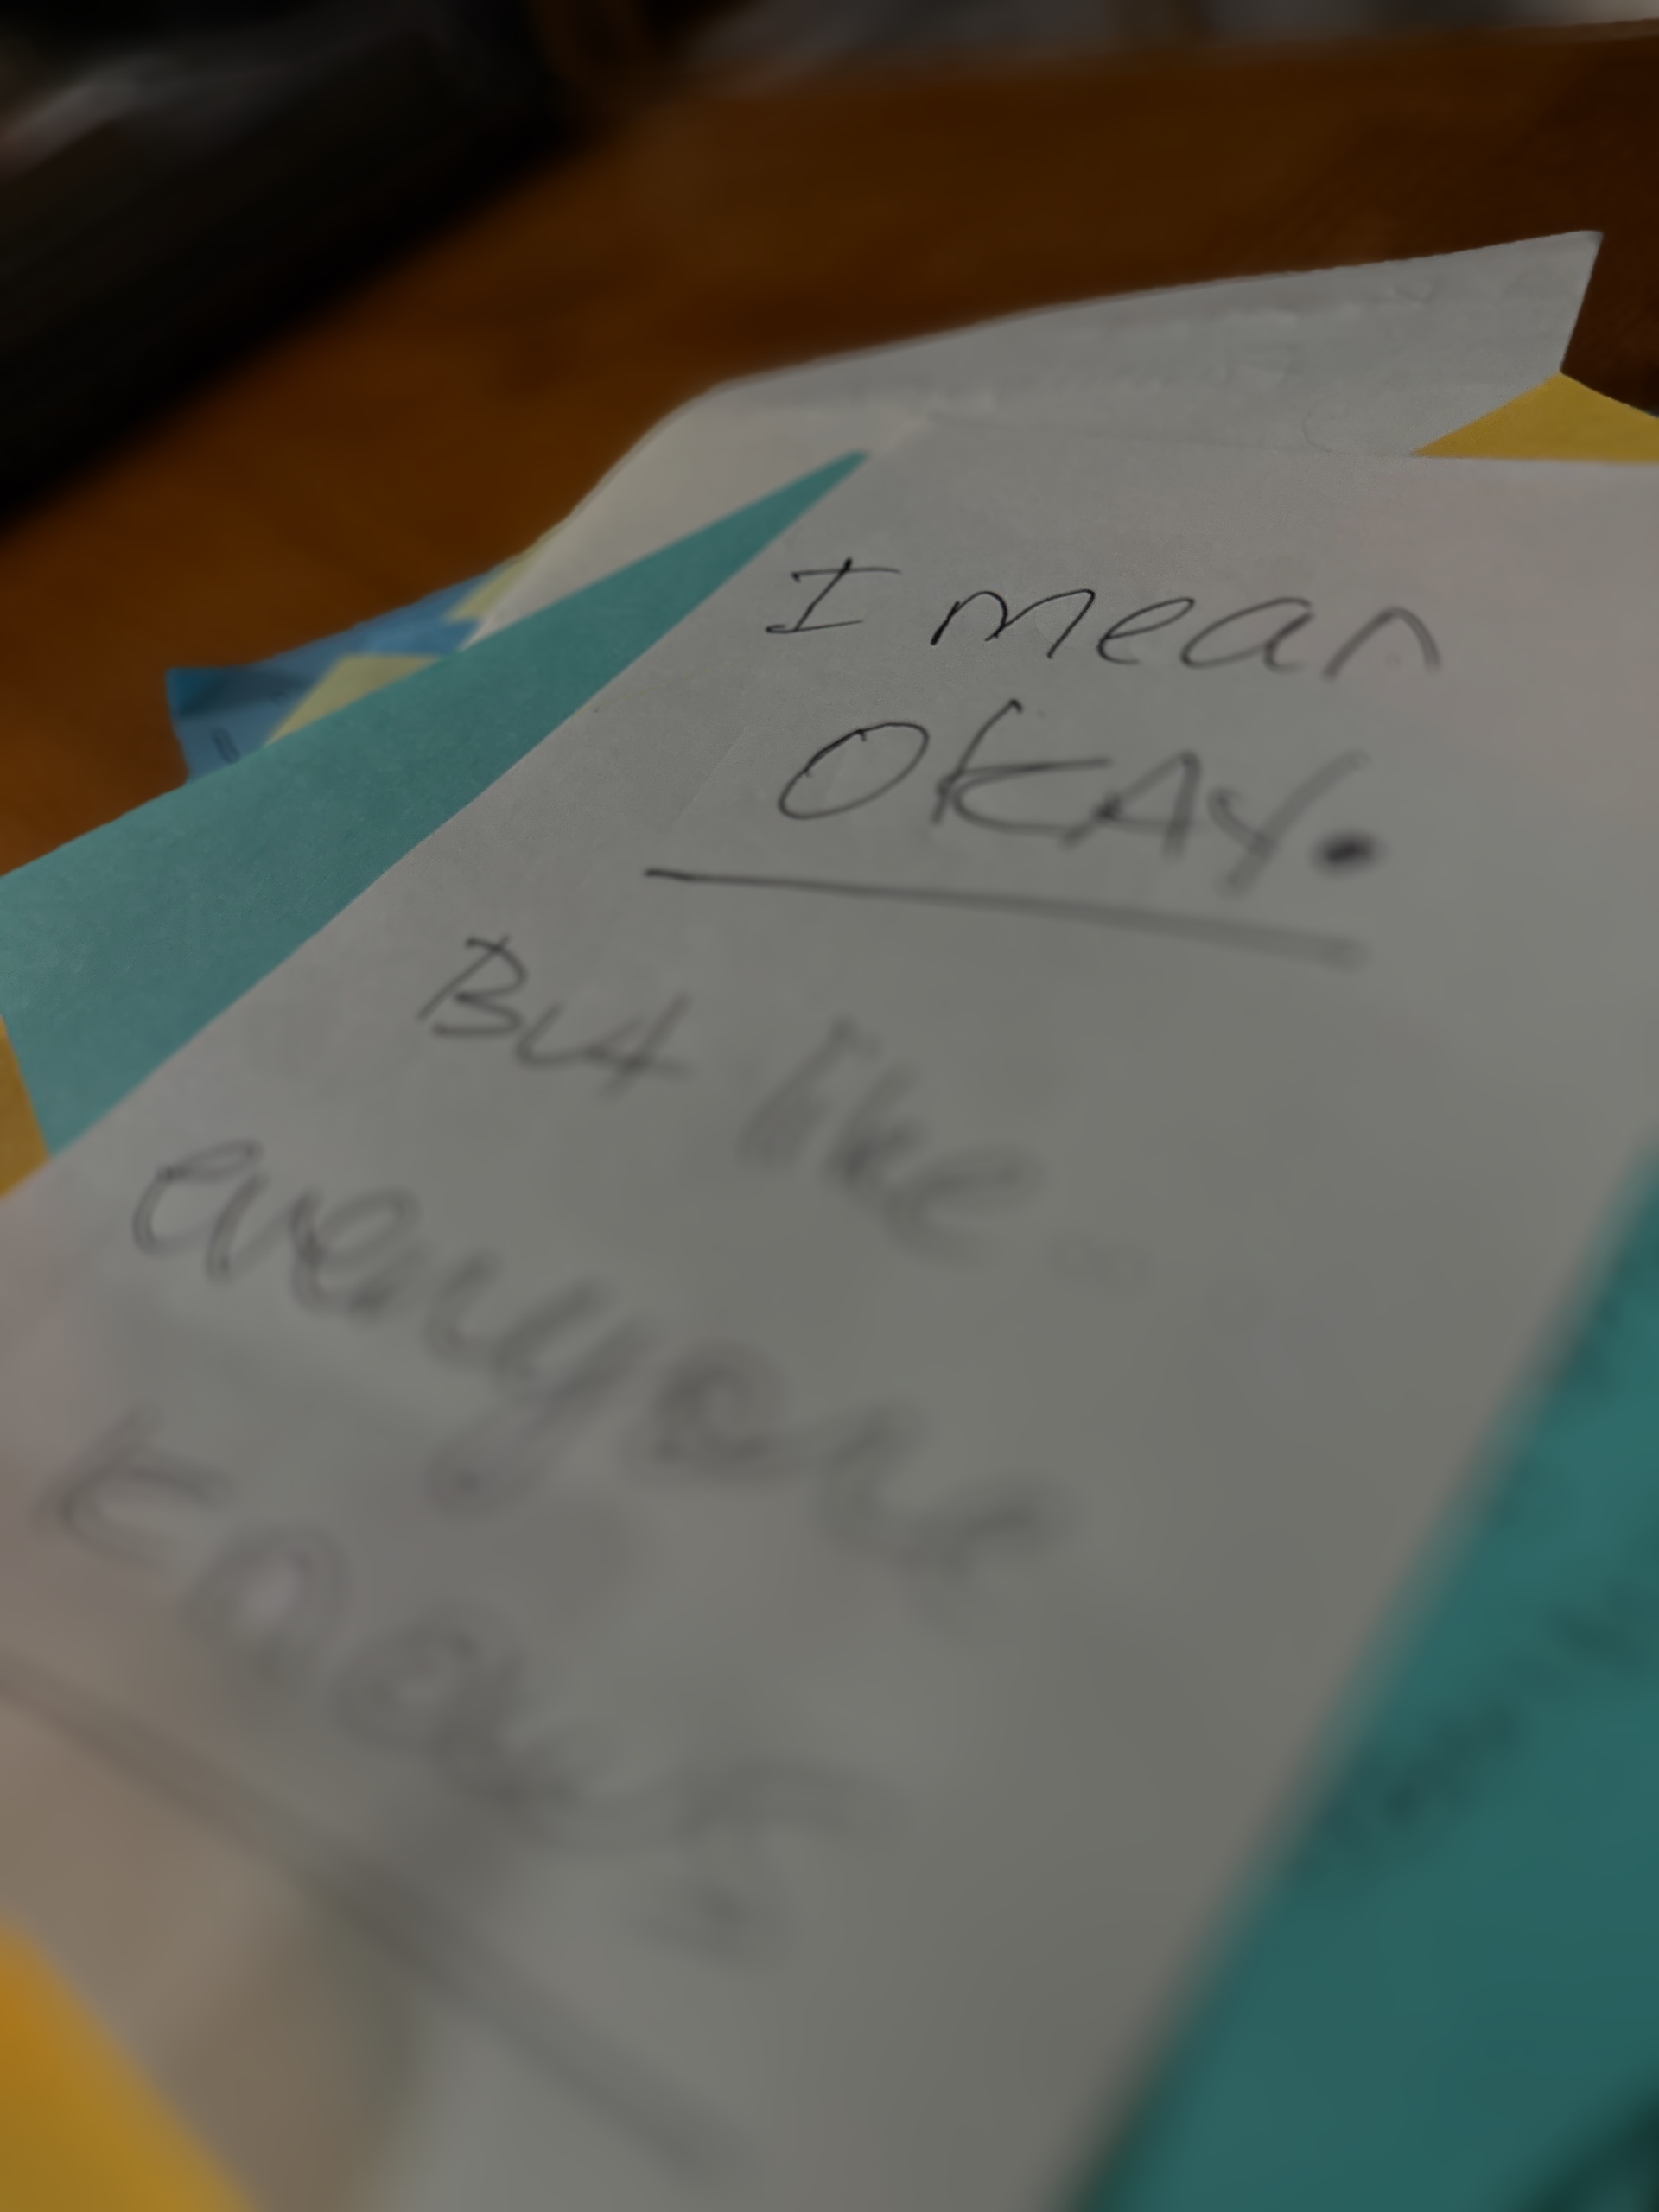 I mean
OKAY.
But like
everyone